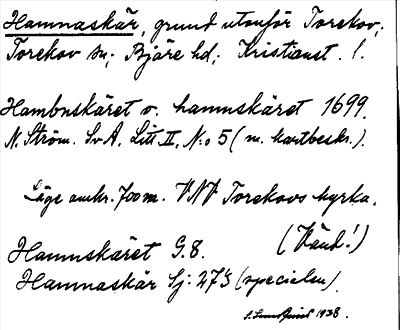 Hamnaskär, grund utanför Torekov,
Torekov sn; Bjäre hd; Kristianst. l.
Hambnskäret o. hamnskäret 1699.
N. Ström. Sv A. Litt II. N:o 5 (m. kartbeskr.).
Läge omkr. 700 m. VNV Torekovs kyrka.
(Känd!)
Hamnskäret G.8.
Hamnaskär Sj: 273 (specialen).
1938.